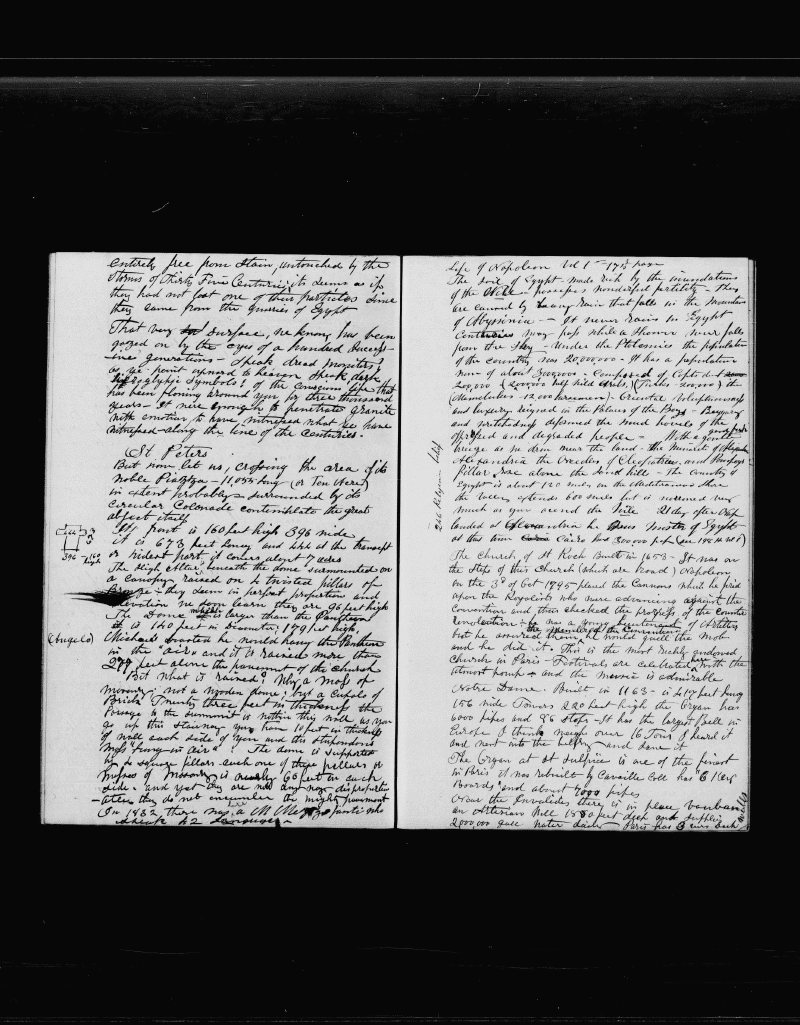 entirely free from stain, untouched by the
storms of Thirty Five Centuries, it seems as if
they had not lost one of their particles since
they came from the quarries of Egypt
That very surface, we know, has been
gazed on by the eyes of a hundred success-
ive generations - Speak dread monitors!
as ye point upward to heaven speak, dark
hieroglyphic symbols! of the conscious life that
has been flowing around you for three thousand
years - It were enough to penetrate granite
with emotion, to have witnessed what ye have
witnessed - along the line of the centuries.
St. Peters
But now let us, crossing the area of its
noble Piazza - 11,055 long (or Ten Acres)
in extent probably - surrounded by its
circular Colonade contemplate the great
object itself
Its front is 160 feet high 396 wide
it is 673 feet long and 444 at the transept
or widest part, it covers about 7 acres
The High Altar beneath the dome surmounted on
a canopy raised on 4 twisted pillars of
Bronze - they seem in perfect proportion and
elevation we soon learn they are 96 feet high
The Dome is larger than the Pantheon
it is 140 feet in diameter, 179 feet high.
(Angelo)
Michael boasted he would hang the Pantheon
in the "air" and it is raised more than
277 feet above the pavement of the church
But what is raised? Why a mass of
masonry - not a wooden frame, but a cupola of
Brick Twenty three feet in thickness the
Passage to the summit is within this wall as you
go up this stairway you have 10 feet in thickness
of wall each side of you and this stupendous
mass "hung in air"! The dome is supported
by 4 square pillars each one of these pillars or
masses of Masonry is nearly 60 feet on each
side - and yet they are not any way disproportion
-ate, they do not encumber the mighty pavement
In 1832 there was a M Me who
speak 42 languages
Life of Napoleon Vol 1st - 173 page
The soil of Egypt made rich by the inundations
of the Nile - possesses wonderful fertility - They
are caused by heavy rain that falls in the Mountains
of Abyssinia - It never rains in Egypt
Centuries may pass while a shower never falls
from the sky - Under the Ptolemies the population
of the country was 20,000,000 - It has a population
now of about 3,000,000 - Composed of Copts
200,000 (2,000,000 Arabs,) (Turks - 200,000) the
(Mamelukes - 12,000 horsemen) - Oriental Voluptuousness
and luxury reigned in the Palaces of the Beys - Beggary
and wretchedness deformed the mud hovels of the
oppressed and degraded people - With a gentle
breeze as we drew near the land - the Minarets of
Alexandria the Needles of Cleopatra, and Pompeys
Pillar rose above the sand hills - The Country of
Egypt is about 120 miles on the Mediterranean shore
the valley extends 600 miles but is narrowed very
much as you ascend the Nile 21 day after Nap
landed at Alexandria he was Master of Egypt
at this time Cairo has 300,000
The Church of St Roch Built in 1653 - It was on
the Steps of this Church (which are broad) Napoleon
on the 3d of Oct 1795 placed the Cannons which he fired
upon the Royalists who were advancing against the
Convention and thus checked the progress of the Counter
revolution - he was a young Lieutenant of Artillery
but he assured the members of the Convention he would quell the mob
and he did it. This is the most richly endowed
Church in Paris - Festivals are celebrated here with the
utmost pomp + and the music is admirable
Notre Dame. Built in 1163 - is 417 feet long
156 wide Towers 220 feet high the Organ has
6000 pipes and 86 stops - It has the largest Bell in
Europe I think weigh over 16 Tons I heard it
and went into the belfry and saw it
The Organ at St Sulpice is one of the finest
in Paris it was rebuilt by Cavaille Coll has "6 Key
Boards" and about 7000 pipes
Near the Invalides there is in place
an Artesian Well 1800 feet deep and supplies
2,000,000 gall water daily - Paris has